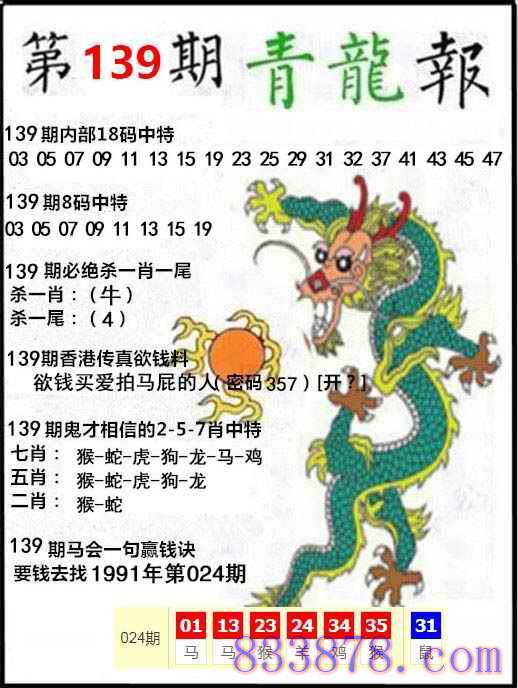 第139期青龍報
139期内部18码中特
03 05 07 09 11 13 15 19 23 25 29 31 32 37 41 43 45 47
139期8码中特
03 05 07 09 11 13 15 19
139期必绝杀一肖一尾
杀一肖：（牛）
杀一尾：（4）
139期香港传真欲钱料
欲钱买爱拍马屁的人（密码357）[开？]
139期鬼才相信的2-5-7肖中特
七肖： 猴-蛇-虎-狗-龙-马-鸡
五肖： 猴-蛇-虎-狗-龙
二肖： 猴-蛇
139期马会一句赢钱诀
要钱去找1991年第024期
024期 01 13 23 24 34 35 31
马 马 猴 羊 鸡 猴 鼠
833878.com